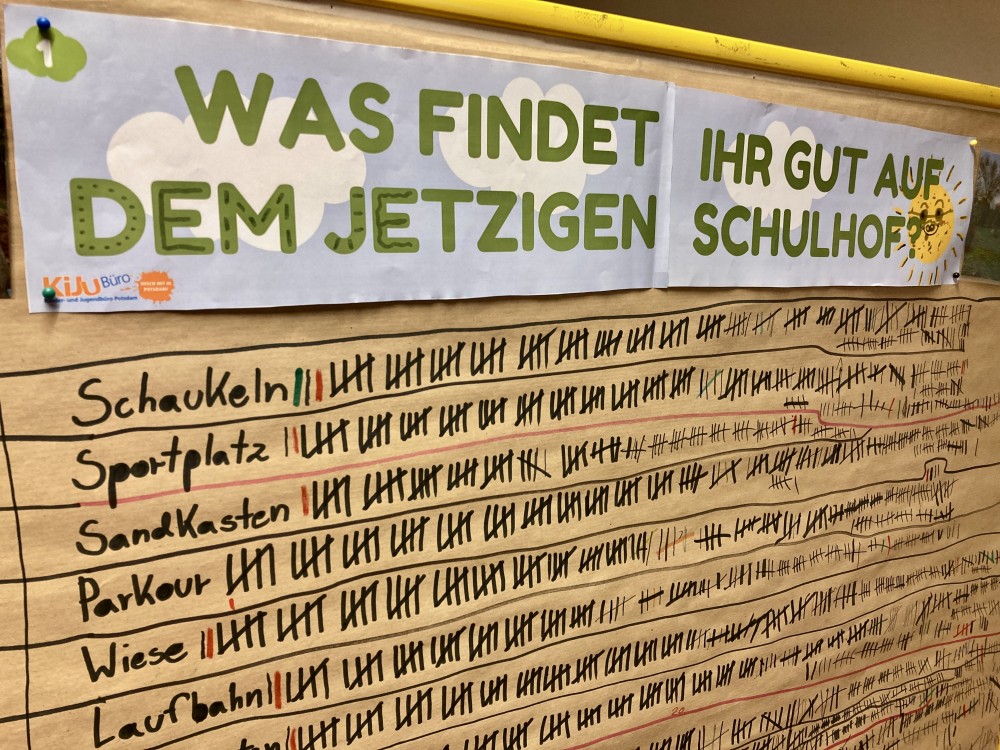 1
WAS FINDET IHR GUT AUF
DEM JETZIGEN SCHULHOF?
KiJu Büro
Kinder- und Jugendbüro Potsdam
Schaukeln
Sportplatz
Sandkasten
Parkour
Wiese
Laufbahn
20